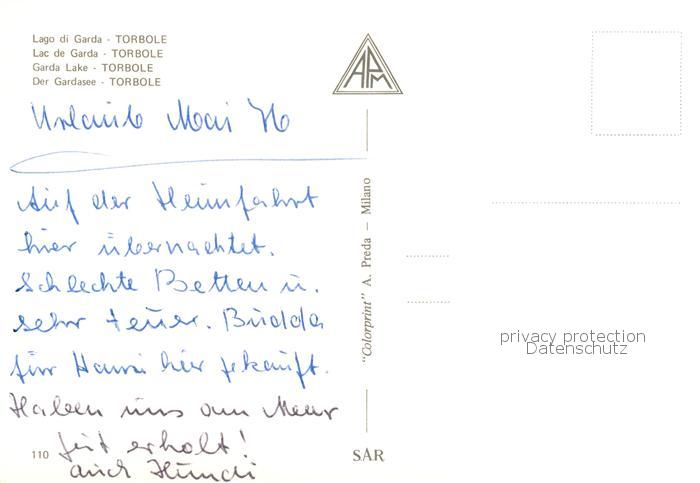 Lago di Garda - TORBOLE
Lac de Garda - TORBOLE
Garda Lake - TORBOLE
Der Gardasee - TORBOLE
APM
Urlaub Mai 76
Auf der Heimfahrt
hier übernachtet.
Schlechte Betten u.
sehr teuer. Budda
für Hanni hier gekauft.
Haben uns am Meer
gut erholt!
auch Hundi
110
SAR
"Colorprint" A. Preda - Milano
privacy protection
Datenschutz